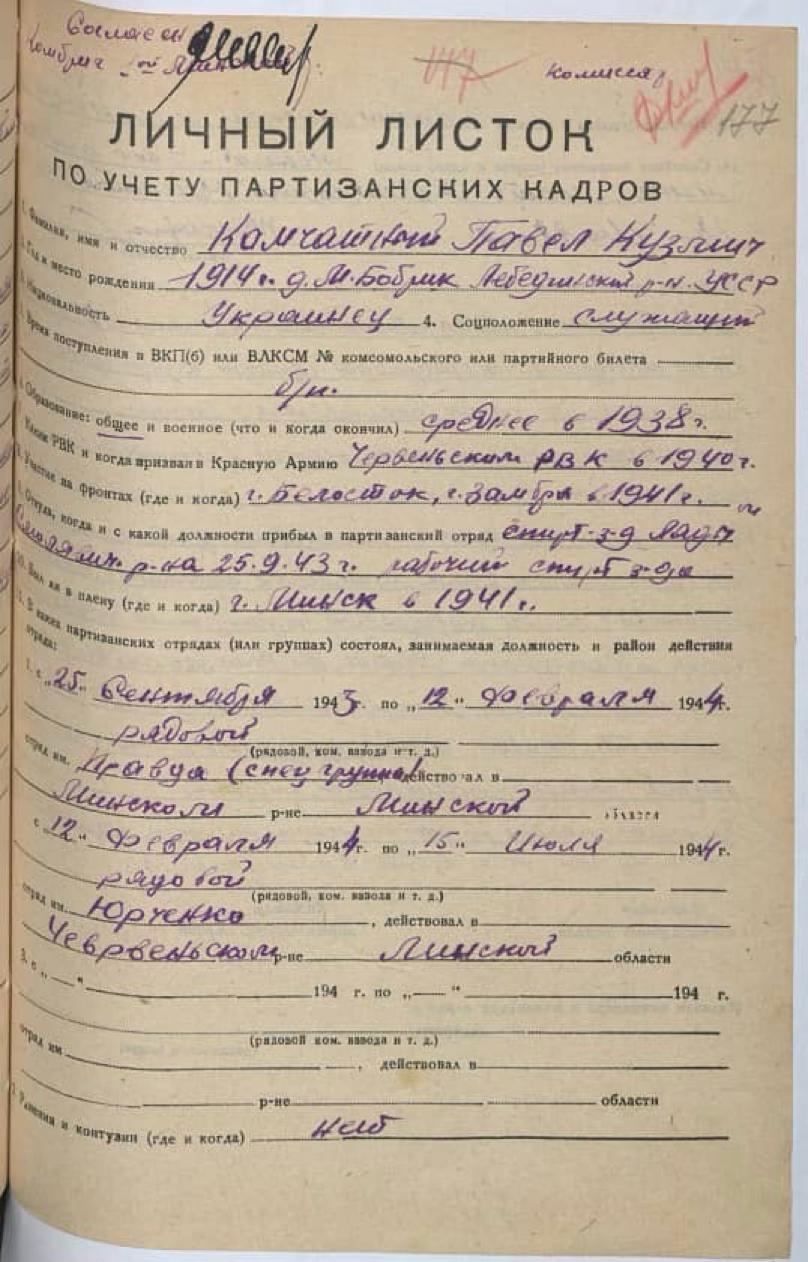 Согласен
Комбриг
Комиссар
177
ЛИЧНЫЙ ЛИСТОК
ПО УЧЕТУ ПАРТИЗАНСКИХ КАДРОВ
1. Фамилия, имя и отчество Камчатный Павел Кузьмич
2. Год и место рождения 1914 г. д. М-Бобрик Лебединский р-н. УССР
3. Национальность Украинец 4. Соцположение служащий
5. Время поступления в ВКП(б) или ВЛКСМ № комсомольского или партийного билета
б/п.
6. Образование: общее и военное (что и когда окончил) среднее в 1938 г.
7. Каким РВК и когда призван в Красную Армию Червеньским РВК в 1940 г.
8. Участие на фронтах (где и когда) г. Белосток, г. Замбры в 1941 г.
9. Откуда, когда и с какой должности прибыл в партизанский отряд спирт-з-д Ляды
р-на 25.9.43 г. рабочий спирт з-да
10. Был ли в плену (где и когда) г. Минск в 1941 г.
11. В каких партизанских отрядах (или группах) состоял, занимаемая должность и район действия
отряда:
1. с „25" Сентября 1943 г. по „12" Февраля 1944 г.
рядовой
(рядовой, ком. взвода и т. д.)
отряд им. Правда (спец группа) действовал в
Минском р-не Минской области
с „12" Февраля 1944 г. по „15" Июля 1944 г.
рядовой
(рядовой, ком. взвода и т. д.)
отряд им. Юрченко, действовал в
Чеврвеньском р-не Минской области
3. с „—" 194 г. по „—" 194 г.
(рядовой ком. взвода и т. д.)
отряд им , действовал в
р-не области
Ранения и контузии (где и когда) нет